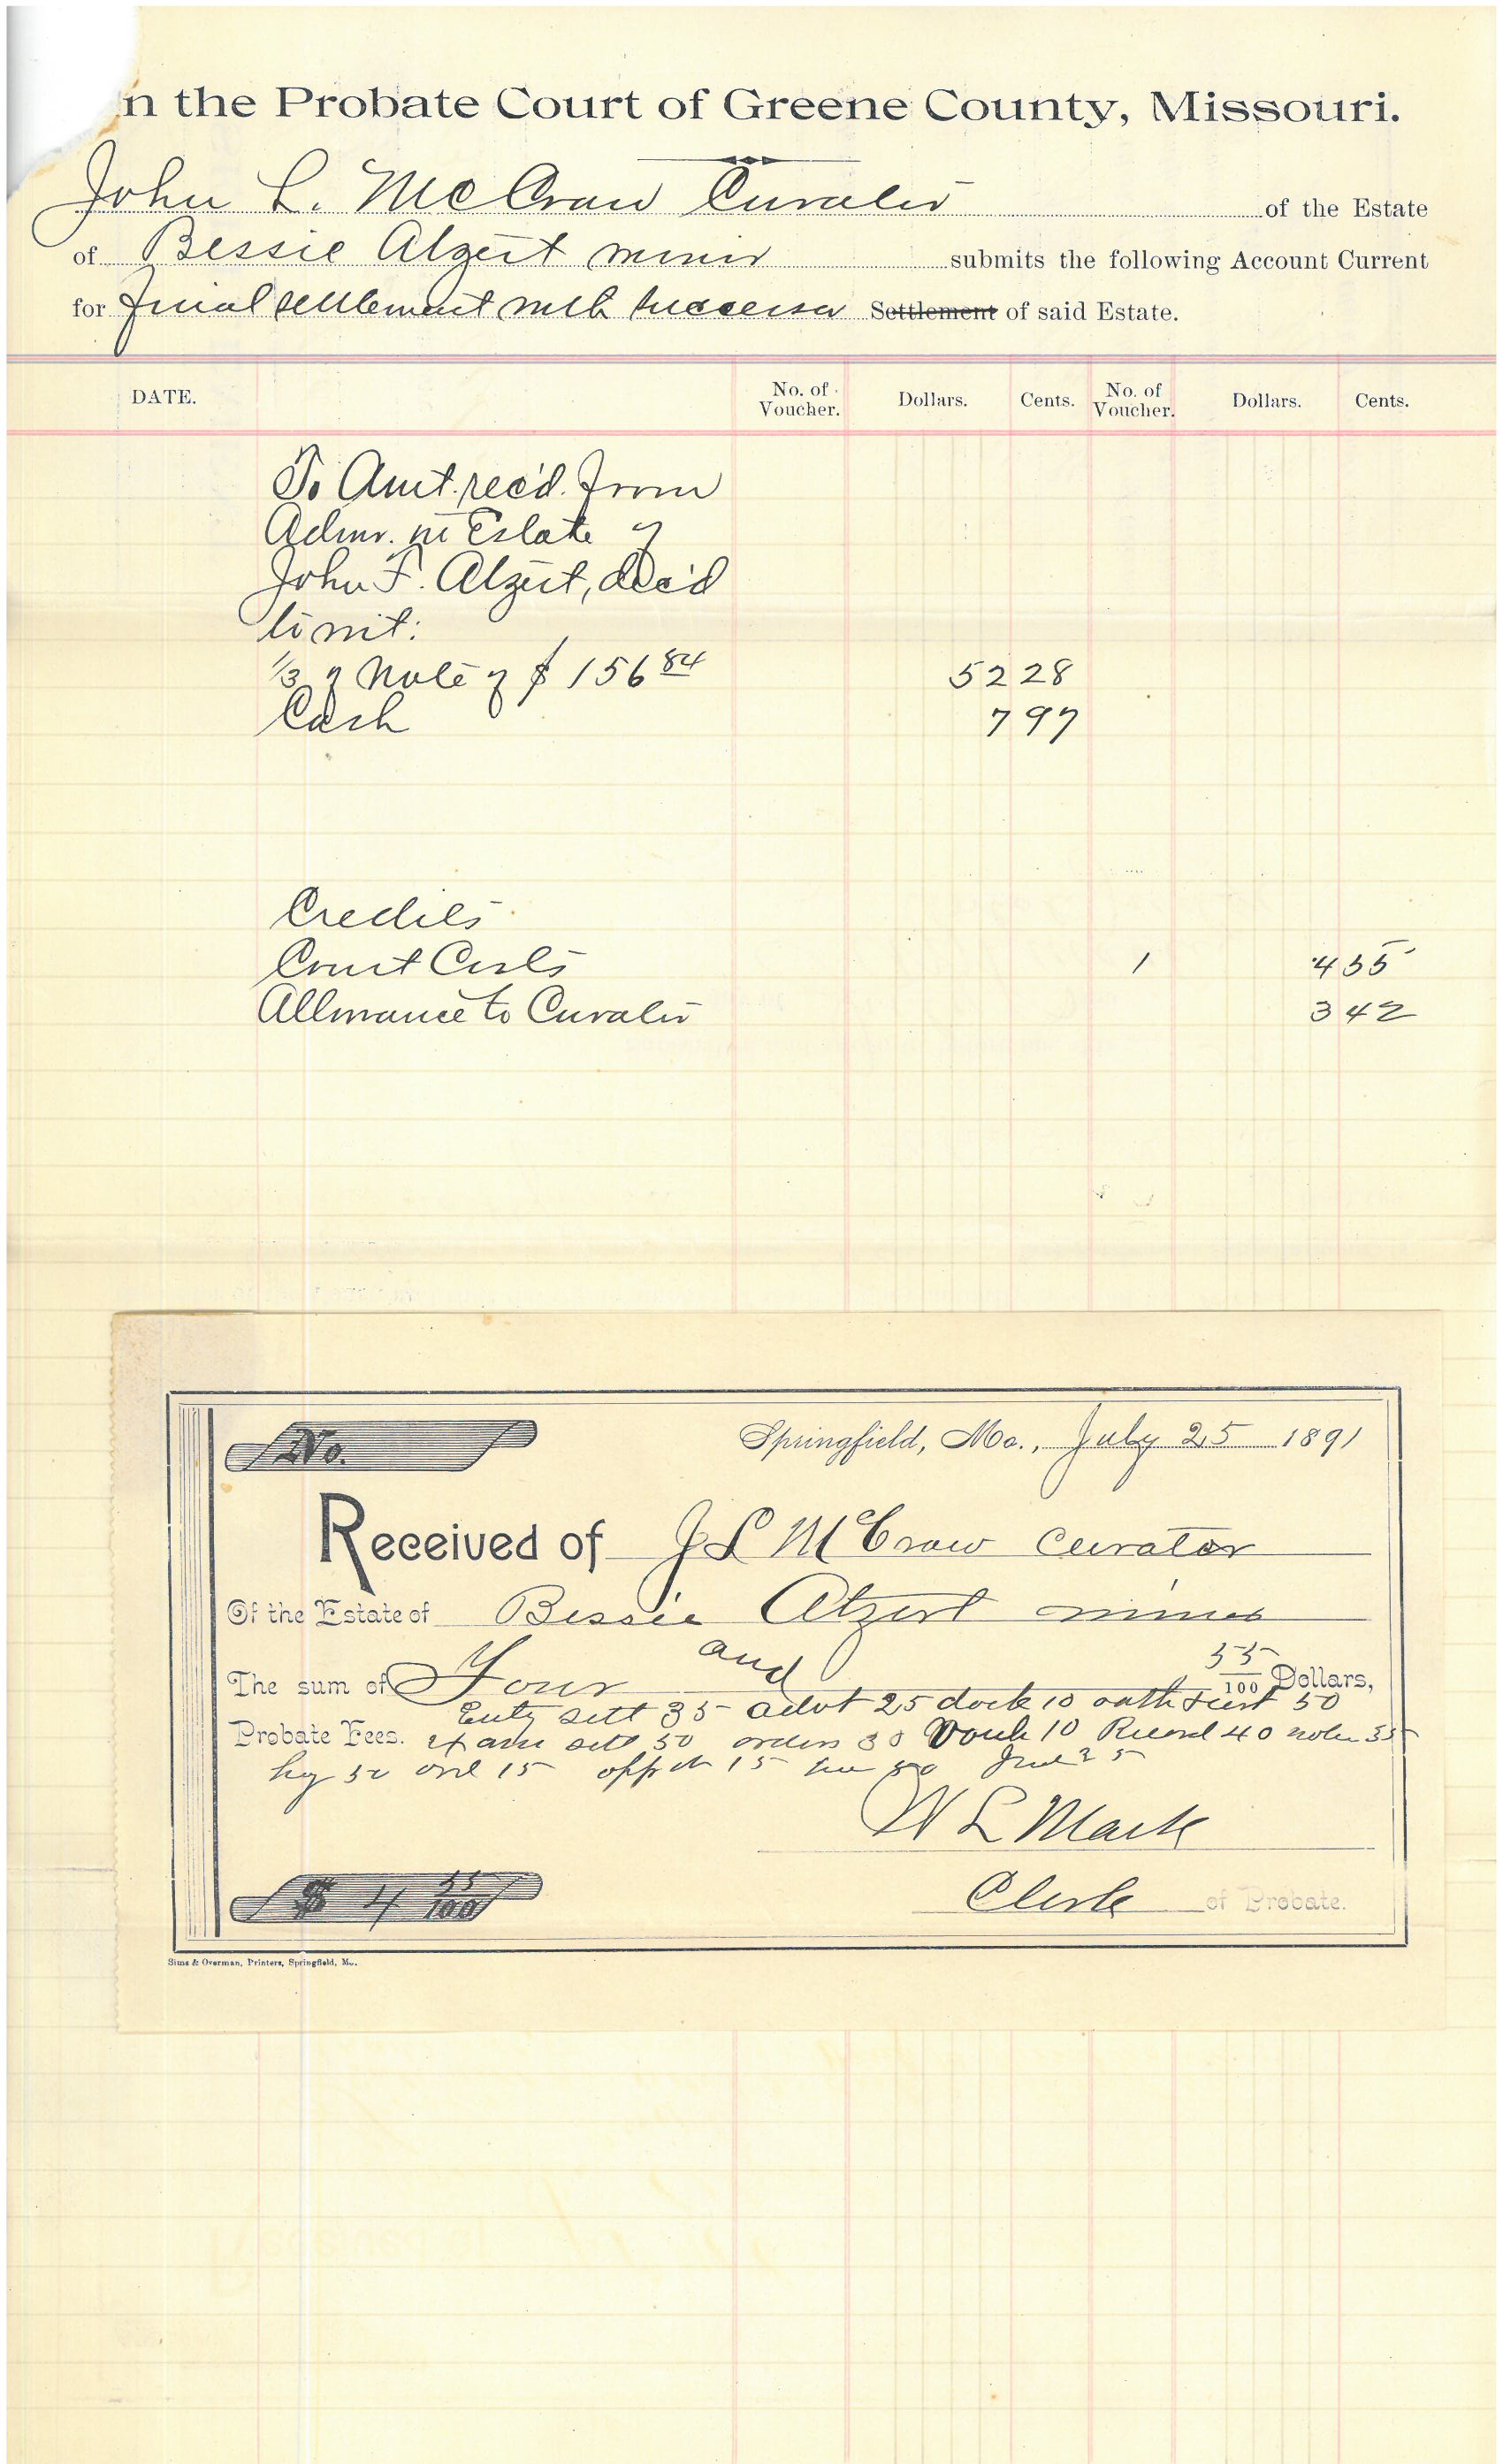 n the Probate Court of Greene County, Missouri.
John L. McCraw Curator of the Estate
of Bessie Atzert minor submits the following Account Current
for final settlement with successor Settlement of said Estate.
DATE. No. of Voucher. Dollars. Cents. No. of Voucher. Dollars. Cents.
To Amt. rec'd. from
Admr. in Estate of
John F. Atzert, dec'd
to wit:
1/3 of Note of $156 84 52 28
Cash 7 97
Credits
Court Costs 1 4 55
Allowance to Curator 3 42
No. Springfield, Mo., July 25 1891
Received of J L McCraw Curator
Of the Estate of Bessie Atzert minor
The sum of Four and 55/100 Dollars,
Entg sett 35 advt 25 dock 10 oath 50
Probate Fees. exam sett 50 orders 30 Vouch 10 Record 40
50 ord 15 15 50 25
W L Mack
$ 4 55/100
Clerk of Probate.
Sims & Overman, Printers, Springfield, Mo.